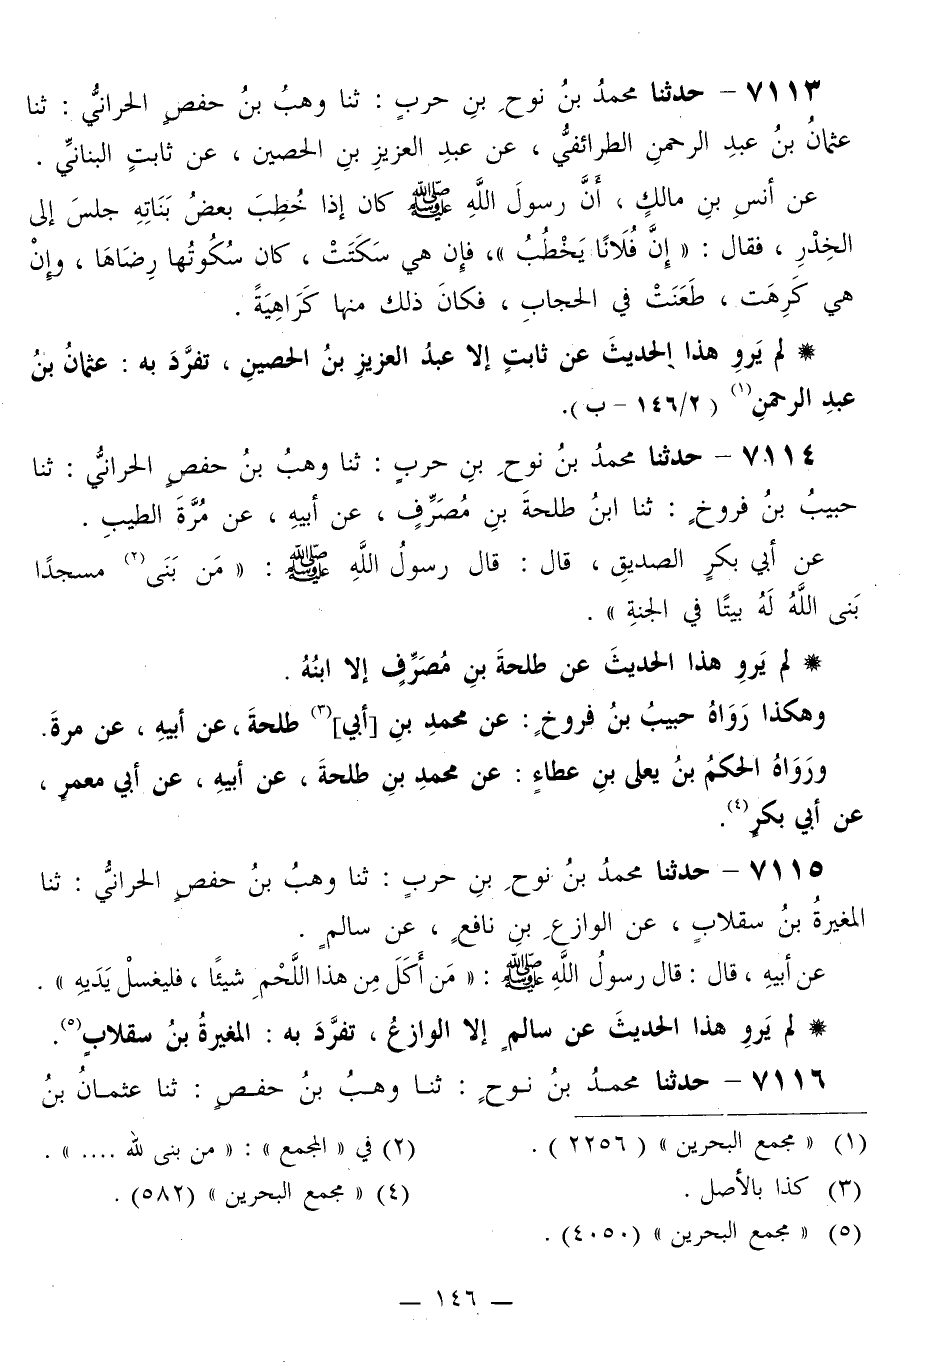 ٧١١٣ – حدثنا محمدُ بنُ نوحِ بنِ حربٍ : ثنا وهبُ بنُ حفصٍ الحرانيُّ : ثنا
عثمانُ بنُ عبدِ الرحمنِ الطرائفيُّ ، عن عبدِ العزيزِ بنِ الحصين ، عن ثابتٍ البنانيِّ .
عن أنسِ بنِ مالكٍ ، أَنَّ رسولَ اللَّهِ ﷺ كان إذا خُطِبَ بعضُ بَنَاتِهِ جلسَ إلى
الخِدْرِ ، فقال : « إِنَّ فُلَانًا يَخْطُبُ »، فإن هي سَكَتَتْ ، كان سُكُوتُها رِضَاهَا ، وإنْ
هي كَرِهَت ، طَعَنَتْ في الحجابِ ، فكانَ ذلك منها كَرَاهِيَةً .
* لم يَروِ هذا الحديثَ عن ثابتٍ إلا عبدُ العزيزِ بنُ الحصينِ ، تفرَّدَ به : عثمانُ بنُ
عبدِ الرحمنِ(١) ( ١٤٦/٢ – ب ).
٧١١٤ – حدثنا محمدُ بنُ نوحِ بنِ حربٍ : ثنا وهبُ بنُ حفصٍ الحرانيُّ : ثنا
حبيبُ بنُ فروخٍ : ثنا ابنُ طلحةَ بنِ مُصَرِّفٍ ، عن أبيهِ ، عن مُرَّةَ الطيبِ .
عن أبي بكرٍ الصديقِ ، قال : قال رسولُ اللَّهِ ﷺ : « مَن بَنَى(٢) مسجدًا
بَنى اللَّهُ لَهُ بيتًا في الجنةِ » .
* لم يَروِ هذا الحديثَ عن طلحةَ بنِ مُصَرِّفٍ إلا ابنُهُ .
وهكذا رَوَاهُ حبيبُ بنُ فروخٍ : عن محمدِ بنِ [أبي](٣) طلحةَ ، عن أبيهِ ، عن مرةَ.
ورَوَاهُ الحكمُ بنُ يعلى بنِ عطاءٍ : عن محمدِ بنِ طلحةَ ، عن أبيهِ ، عن أبي معمرٍ ،
عن أبي بكرٍ(٤).
٧١١٥ – حدثنا محمدُ بنُ نوحِ بنِ حربٍ : ثنا وهبُ بنُ حفصٍ الحرانيُّ : ثنا
المغيرةُ بنُ سقلابٍ ، عن الوازعِ بنِ نافعٍ ، عن سالمٍ .
عن أبيهِ ، قال : قال رسولُ اللَّهِ ﷺ : « مَن أَكَلَ مِن هذا اللَّحْمِ شيئًا ، فليغسلْ يَدَيهِ » .
* لم يَروِ هذا الحديثَ عن سالمٍ إلا الوازعُ ، تفرَّدَ به : المغيرةُ بنُ سقلابٍ(٥).
٧١١٦ – حدثنا محمدُ بنُ نوحٍ : ثنا وهبُ بنُ حفصٍ : ثنا عثمانُ بنُ
(١) « مجمع البحرين » ( ٢٢٥٦ ) .
(٢) في « المجمع » : « من بنى لله .... » .
(٣) كذا بالأصل .
(٤) « مجمع البحرين » (٥٨٢) .
(٥) « مجمع البحرين » (٤٠٥٠) .
– ١٤٦ –